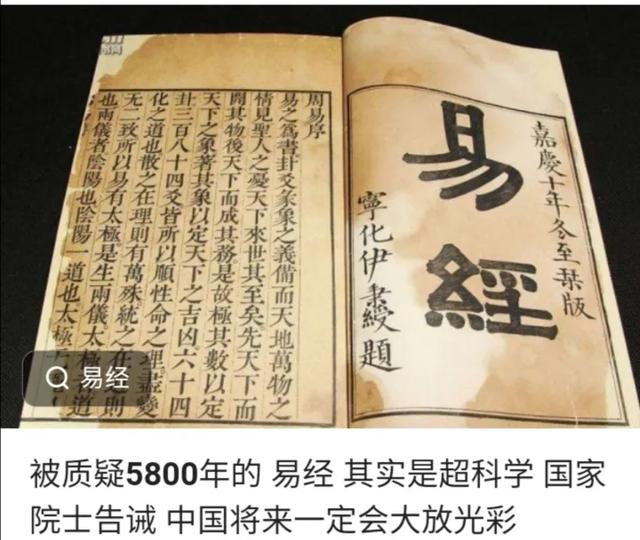 嘉慶十年冬至栞版
易經
寧化伊秉綬題
周易序
易之為書卦爻彖象之義備而天地萬物之
情見聖人之憂天下來世其至矣先天下而
開其物後天下而成其務是故極其數以定
天下之象著其象以定天下之吉凶六十四
卦三百八十四爻皆所以順性命之理盡變
化之道也散之在理則有萬殊統之在道則
無二致所以易有太極是生兩儀太極者道
也兩儀者陰陽也陰陽一道也太極
易经
被质疑5800年的 易经 其实是超科学 国家
院士告诫 中国将来一定会大放光彩